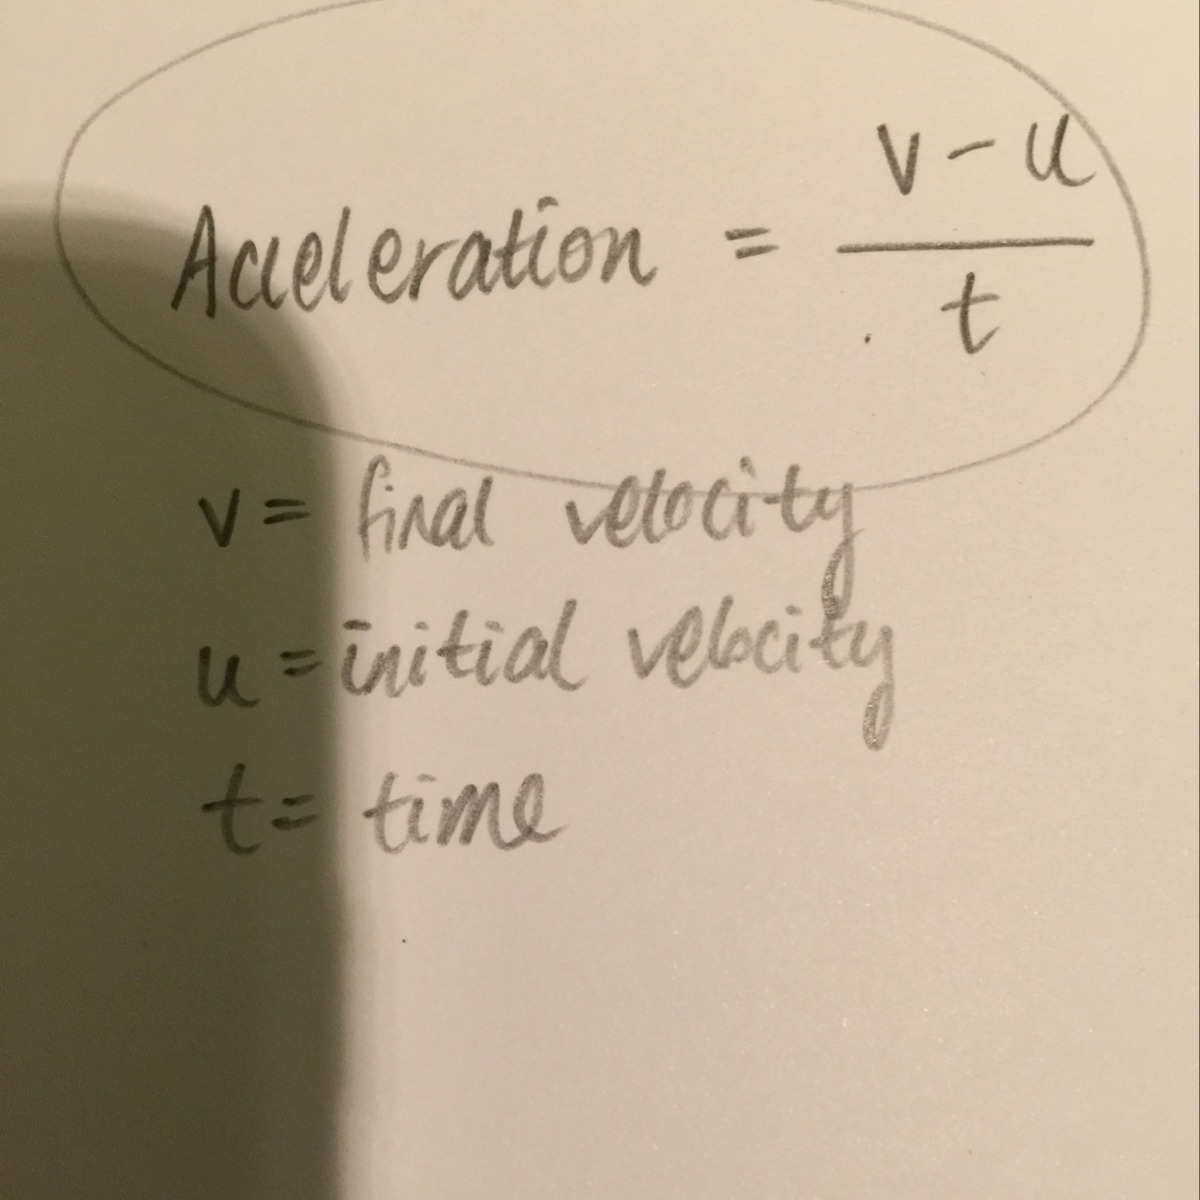 Acceleration = v - u / t
v = final velocity
u = initial velocity
t = time